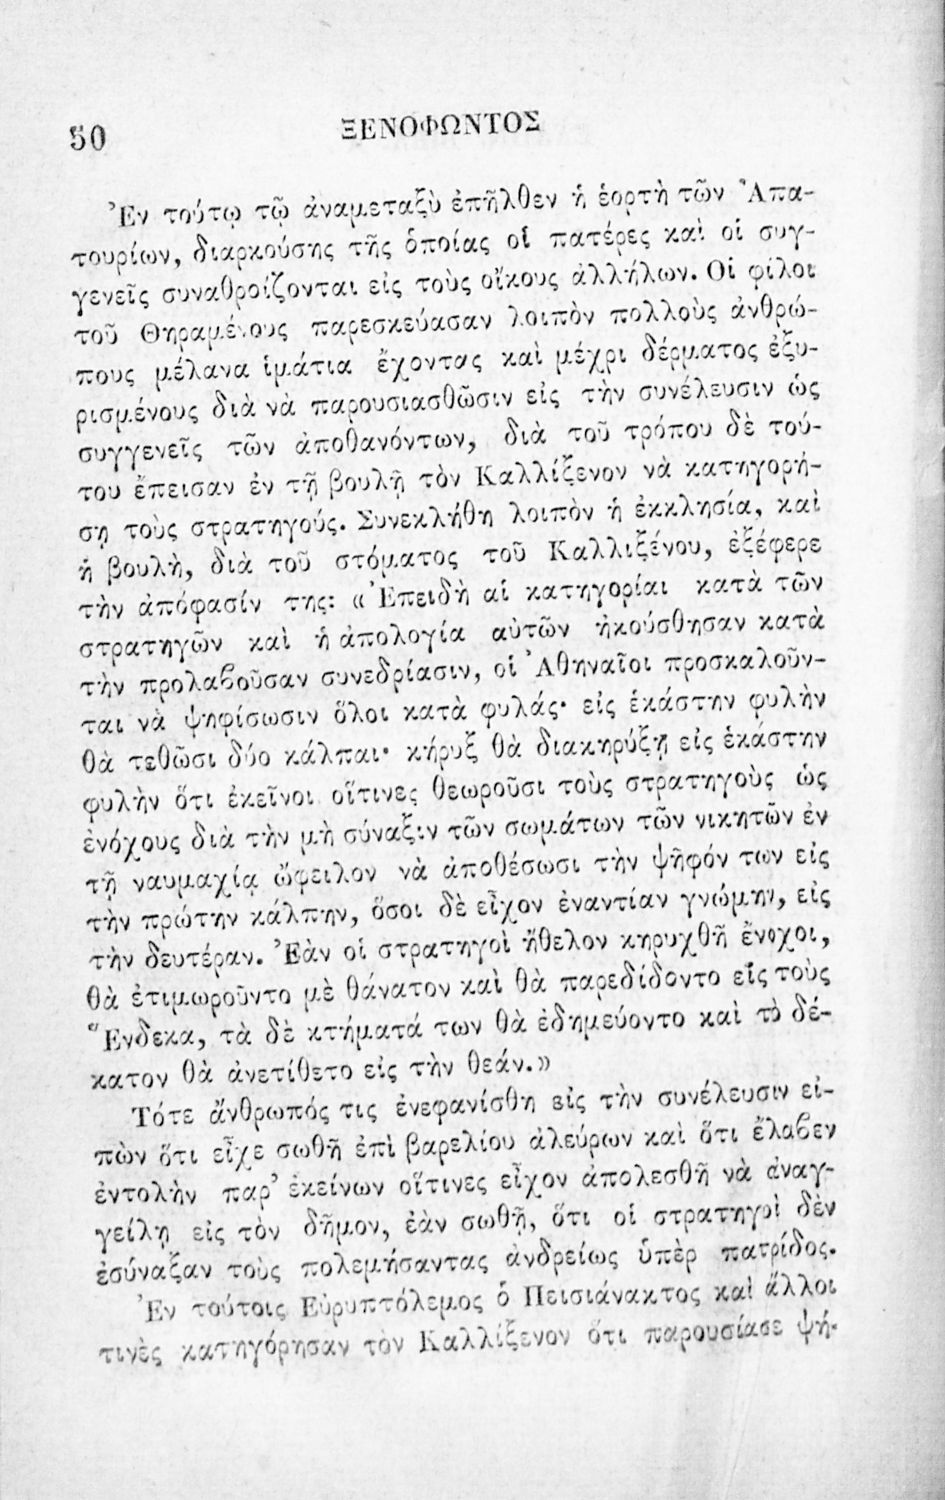 50
ΞΕΝΟΦΩΝΤΟΣ
Ἐν τούτῳ τῷ ἀναμεταξὺ ἐπῆλθεν ἡ ἑορτὴ τῶν Ἀπα-
τουρίων, διαρκούσης τῆς ὁποίας οἱ πατέρες καὶ οἱ συγ-
γενεῖς συναθροίζονται εἰς τοὺς οἴκους ἀλλήλων. Οἱ φίλοι
τοῦ Θηραμένους παρεσκεύασαν λοιπὸν πολλοὺς ἀνθρώ-
πους μέλανα ἱμάτια ἔχοντας καὶ μέχρι δέρματος ἐξυ-
ρισμένους διὰ νὰ παρουσιασθῶσιν εἰς τὴν συνέλευσιν ὡς
συγγενεῖς τῶν ἀποθανόντων, διὰ τοῦ τρόπου δὲ τού-
του ἔπεισαν ἐν τῇ βουλῇ τὸν Καλλίξενον νὰ κατηγορή-
σῃ τοὺς στρατηγούς. Συνεκλήθη λοιπὸν ἡ ἐκκλησία, καὶ
ἡ βουλὴ, διὰ τοῦ στόματος τοῦ Καλλιξένου, ἐξέφερε
τὴν ἀπόφασίν της: « Ἐπειδὴ αἱ κατηγορίαι κατὰ τῶν
στρατηγῶν καὶ ἡ ἀπολογία αὐτῶν ἠκούσθησαν κατὰ
τὴν προλαβοῦσαν συνεδρίασιν, οἱ Ἀθηναῖοι προσκαλοῦν-
ται νὰ ψηφίσωσιν ὅλοι κατὰ φυλάς· εἰς ἑκάστην φυλὴν
θὰ τεθῶσι δύο κάλπαι· κήρυξ θὰ διακηρύξῃ εἰς ἑκάστην
φυλὴν ὅτι ἐκεῖνοι οἵτινες θεωροῦσι τοὺς στρατηγοὺς ὡς
ἐνόχους διὰ τὴν μὴ σύναξιν τῶν σωμάτων τῶν νικητῶν ἐν
τῇ ναυμαχίᾳ ὤφειλον νὰ ἀποθέσωσι τὴν ψῆφόν των εἰς
τὴν πρώτην κάλπην, ὅσοι δὲ εἶχον ἐναντίαν γνώμην, εἰς
τὴν δευτέραν. Ἐὰν οἱ στρατηγοὶ ἤθελον κηρυχθῆ ἔνοχοι,
θὰ ἐτιμωροῦντο μὲ θάνατον καὶ θὰ παρεδίδοντο εἰς τοὺς
Ἕνδεκα, τὰ δὲ κτήματά των θὰ ἐδημεύοντο καὶ τὸ δέ-
κατον θὰ ἀνετίθετο εἰς τὴν θεάν.»
Τότε ἄνθρωπός τις ἐνεφανίσθη εἰς τὴν συνέλευσιν εἰ-
πὼν ὅτι εἶχε σωθῆ ἐπὶ βαρελίου ἀλεύρων καὶ ὅτι ἔλαβεν
ἐντολὴν παρ’ ἐκείνων οἵτινες εἶχον ἀπολεσθῆ νὰ ἀναγ-
γείλῃ εἰς τὸν δῆμον, ἐὰν σωθῇ, ὅτι οἱ στρατηγοὶ δὲν
ἐσύναξαν τοὺς πολεμήσαντας ἀνδρείως ὑπὲρ πατρίδος.
Ἐν τούτοις Εὐρυπτόλεμος ὁ Πεισιάνακτος καὶ ἄλλοι
τινὲς κατηγόρησαν τὸν Καλλίξενον ὅτι παρουσίασε ψή-